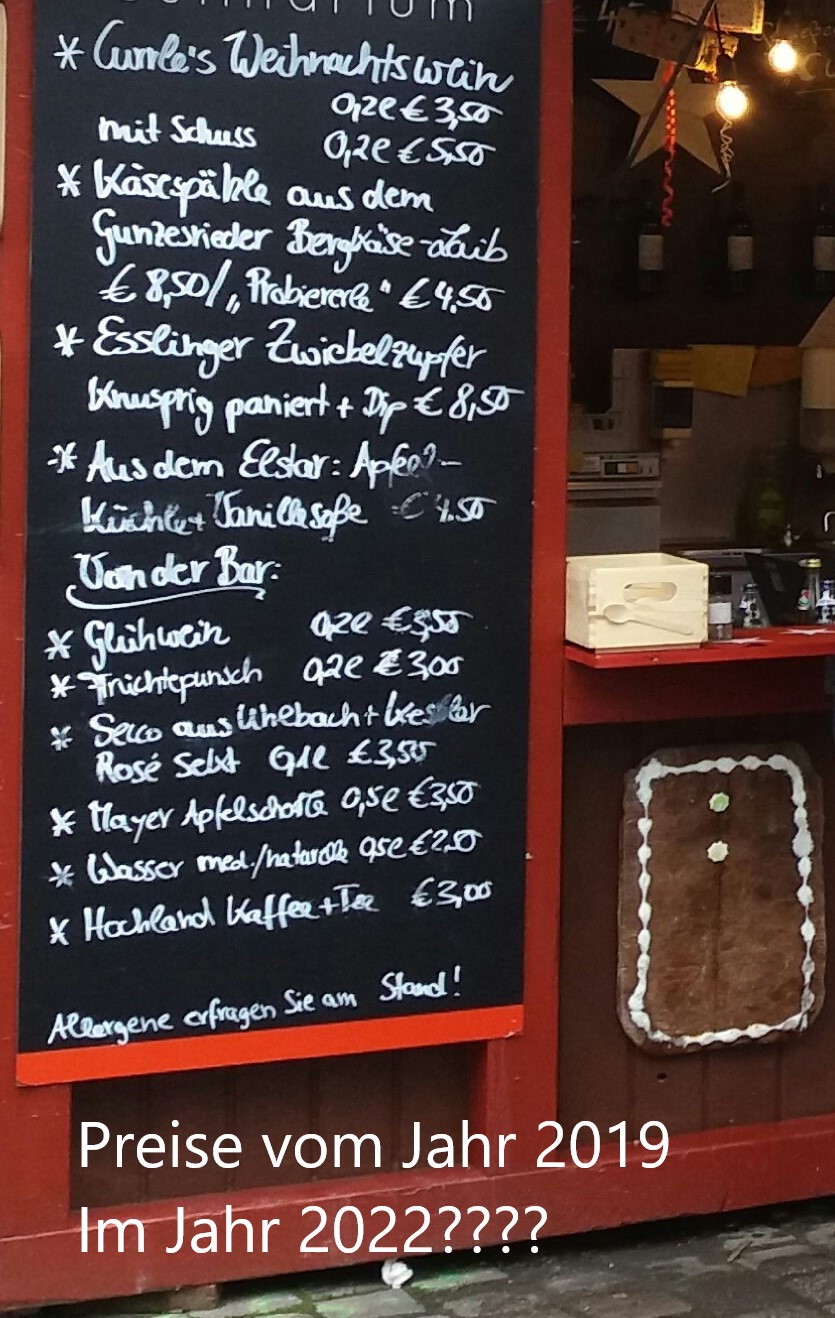 * Currle's Weihnachtswein
0,2l € 3,50
mit Schuss 0,2l € 5,50
* Käsespätzle aus dem
Gunzesrieder Bergkäse-Laib
€ 8,50/„Probiererle" € 4,50
* Esslinger Zwiebelzupfer
knusprig paniert + Dip € 8,50
* Aus dem Elstar: Apfel-
Küchle + Vanillesoße € 4.50
Von der Bar:
* Glühwein 0,2l €3,50
* Früchtepunsch 0,2l €3,00
* Secco aus Uhlbach + Kessler
Rosé Sekt 0,1l €3,50
* Mayer Apfelschorle 0,5l €3,50
* Wasser med./naturelle 0,5l €2.50
* Hochland Kaffee + Tee €3,00
Allergene erfragen Sie am Stand!
Preise vom Jahr 2019
Im Jahr 2022????